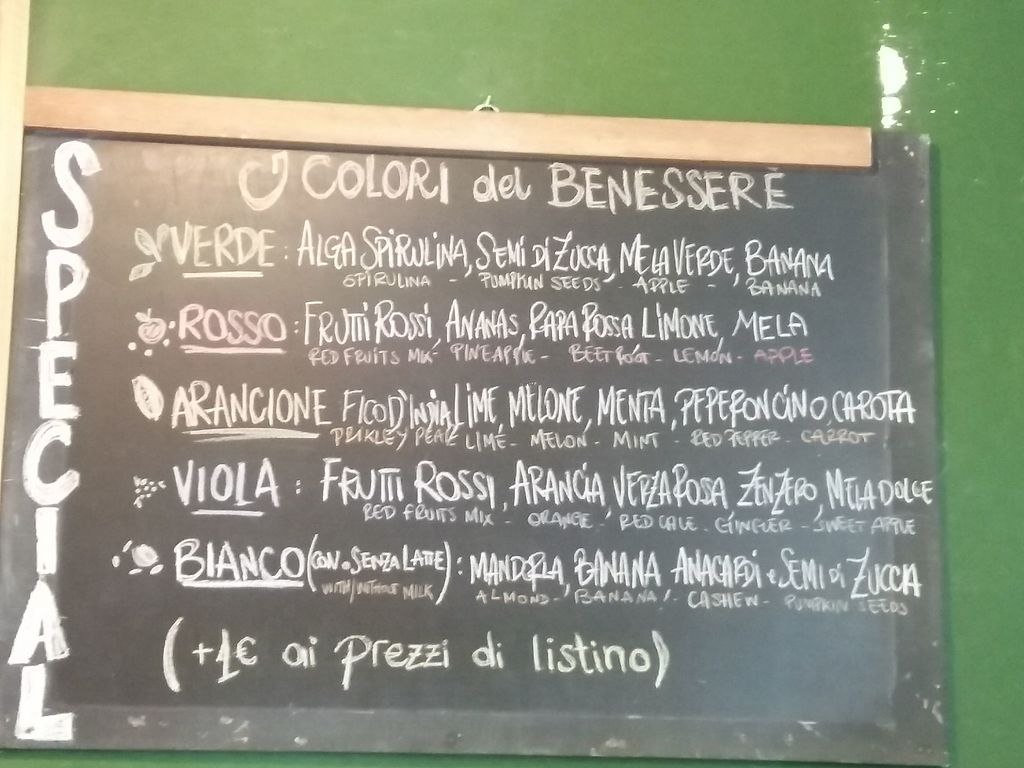 SPECIAL
I COLORI del BENESSERE
VERDE: ALGA SPIRULINA, SEMI DI ZUCCA, MELA VERDE, BANANA
SPIRULINA - PUMPKIN SEEDS - APPLE - BANANA
ROSSO: FRUTTI ROSSI, ANANAS, RAPA ROSSA LIMONE, MELA
RED FRUITS MIX - PINEAPPLE - BEETROOT - LEMON - APPLE
ARANCIONE FICO D'INDIA, LIME, MELONE, MENTA, PEPERONCINO, CAROTA
PRIKLEY PEAR LIME - MELON - MINT - RED PEPPER - CARROT
VIOLA: FRUTTI ROSSI, ARANCIA, VERZA ROSA, ZENZERO, MELA DOLCE
RED FRUITS MIX - ORANGE - RED CALE - GINGER - SWEET APPLE
BIANCO (CON o SENZA LATTE): MANDORLA, BANANA ANACARDI e SEMI DI ZUCCA
WITH/WITHOUT MILK) ALMOND - BANANA - CASHEW - PUMPKIN SEEDS
(+1€ ai prezzi di listino)